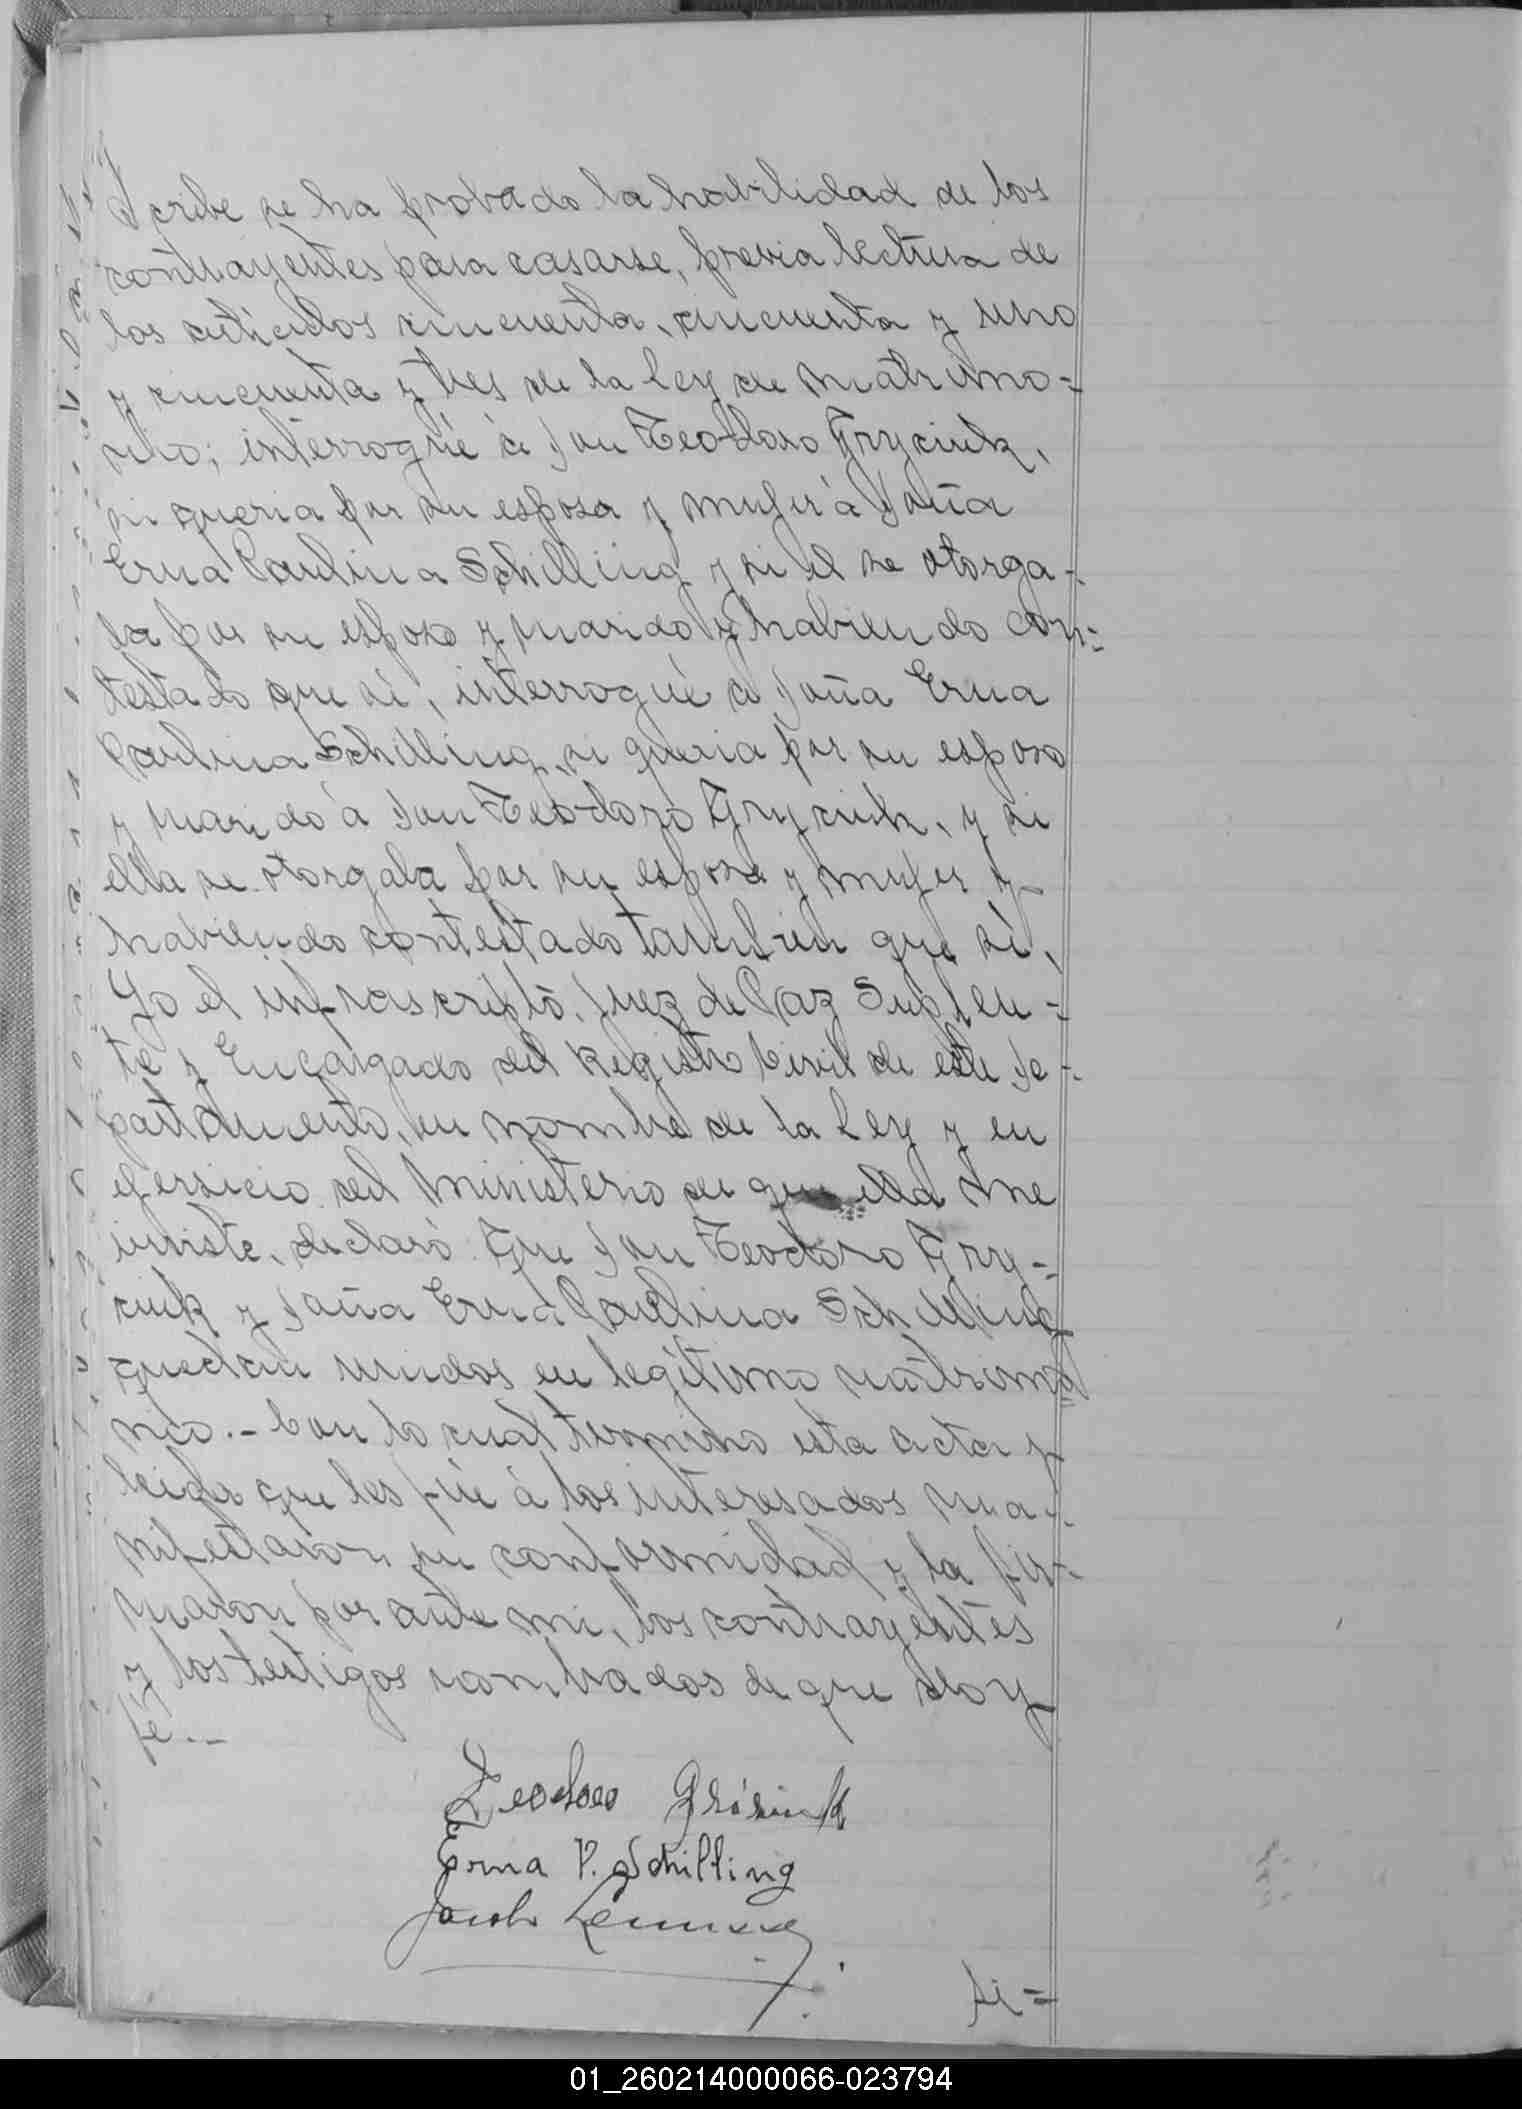 scribe se ha probado la habilidad de los
contrayentes para casarse, previa lectura de
los articulos cincuenta, cincuenta y uno
y cincuenta y tres de la Ley de matrimo=
nio; interrogué á don Teodoro Gryciuk,
si queria por su esposa y mujer á doña
Erna Paulina Schilling y si él se otorga-
ba por su esposo y marido y habiendo con=
testado que sí, interrogué á doña Erna
Paulina Schilling, si queria por su esposo
y marido á don Teodoro Gryciuk, y si
ella se otorgaba por su esposa y mujer y
habiendo contestado tambien que sí,
Yo el infrascripto, Juez de Paz Suplen=
te y Encargado del Registro Civil de este De-
partamento, en nombre de la Ley y en
ejersicio del Ministerio de que ella me
inviste, declaró: Que don Teodoro Gry-
ciuk y doña Erna Paulina Schilling
quedan unidos en legitimo matrimo
nio.- Con lo cual termino esta acta y
leida que les fué á los interesados ma-
nifestaron su conformidad y la fir=
maron por ante mi, los contrayentes
y los testigos nombrados de que doy
fé.-
Teodoro
Erna P. Schilling
Jacob
si=
01_260214000066-023794